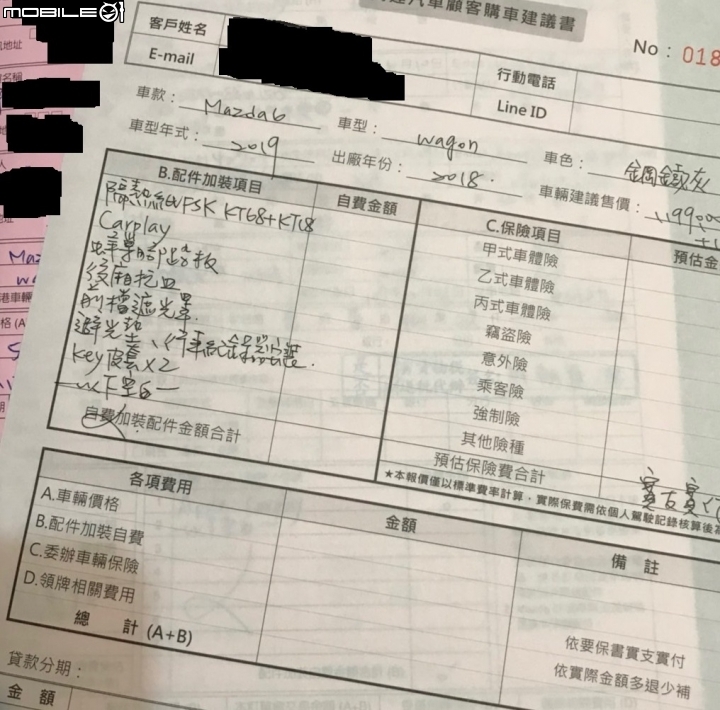 MOBILE01
汽車顧客購車建議書
No：018
客戶姓名
E-mail
行動電話
Line ID
車款：Mazda6
車型：wagon
車色：鋼鐵灰
車型年式：2019
出廠年份：2018.
車輛建議售價：
B.配件加裝項目
自費金額
C.保險項目
預估金
隔熱紙 FSK KT68+KT18
Carplay
迎賓踏板
後廂托盤
前檔遮光罩
避光墊、行車紀錄器安裝.
key皮套x2
以下空白
自費加裝配件金額合計
甲式車體險
乙式車體險
丙式車體險
竊盜險
意外險
乘客險
強制險
其他險種
預估保險費合計
★本報價僅以標準費率計算，實際保費需依個人駕駛記錄核算後
實支實付
各項費用
金額
備 註
A.車輛價格
B.配件加裝自費
C.委辦車輛保險
D.領牌相關費用
總 計 (A+B)
依要保書實支實付
依實際金額多退少補
貸款分期：
金 額
地址
名稱
地址
Maz
港車輛
格(A
期